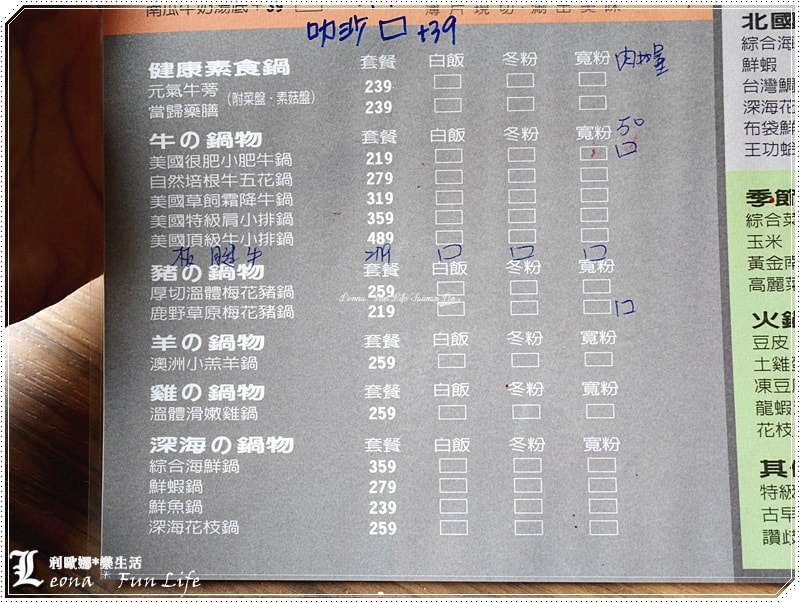 南瓜牛奶湯底+39 □
薄片現切
□ +39
健康素食鍋 套餐 白飯 冬粉 寬粉 肉增量
元氣牛蒡 239
(附菜盤·素菇盤)
當歸藥膳 239
牛の鍋物 套餐 白飯 冬粉 寬粉 50
美國很肥小肥牛鍋 219
自然培根牛五花鍋 279
美國草飼霜降牛鍋 319
美國特級肩小排鍋 359
美國頂級牛小排鍋 489
板腱牛 279
豬の鍋物 套餐 白飯 冬粉 寬粉
厚切溫體梅花豬鍋 259
鹿野草原梅花豬鍋 219
羊の鍋物 套餐 白飯 冬粉 寬粉
澳洲小羔羊鍋 259
雞の鍋物 套餐 白飯 冬粉 寬粉
溫體滑嫩雞鍋 259
深海の鍋物 套餐 白飯 冬粉 寬粉
綜合海鮮鍋 359
鮮蝦鍋 279
鮮魚鍋 239
深海花枝鍋 259
北國
綜合海
鮮蝦
台灣鯛
深海花
布袋鮮
王功蛤
季節
綜合菜
玉米
黃金南
高麗菜
火鍋
豆皮
土雞蛋
凍豆腐
龍蝦
花枝
其他
特級
古早
讚岐
利歐娜*樂生活
Leona Fun Life